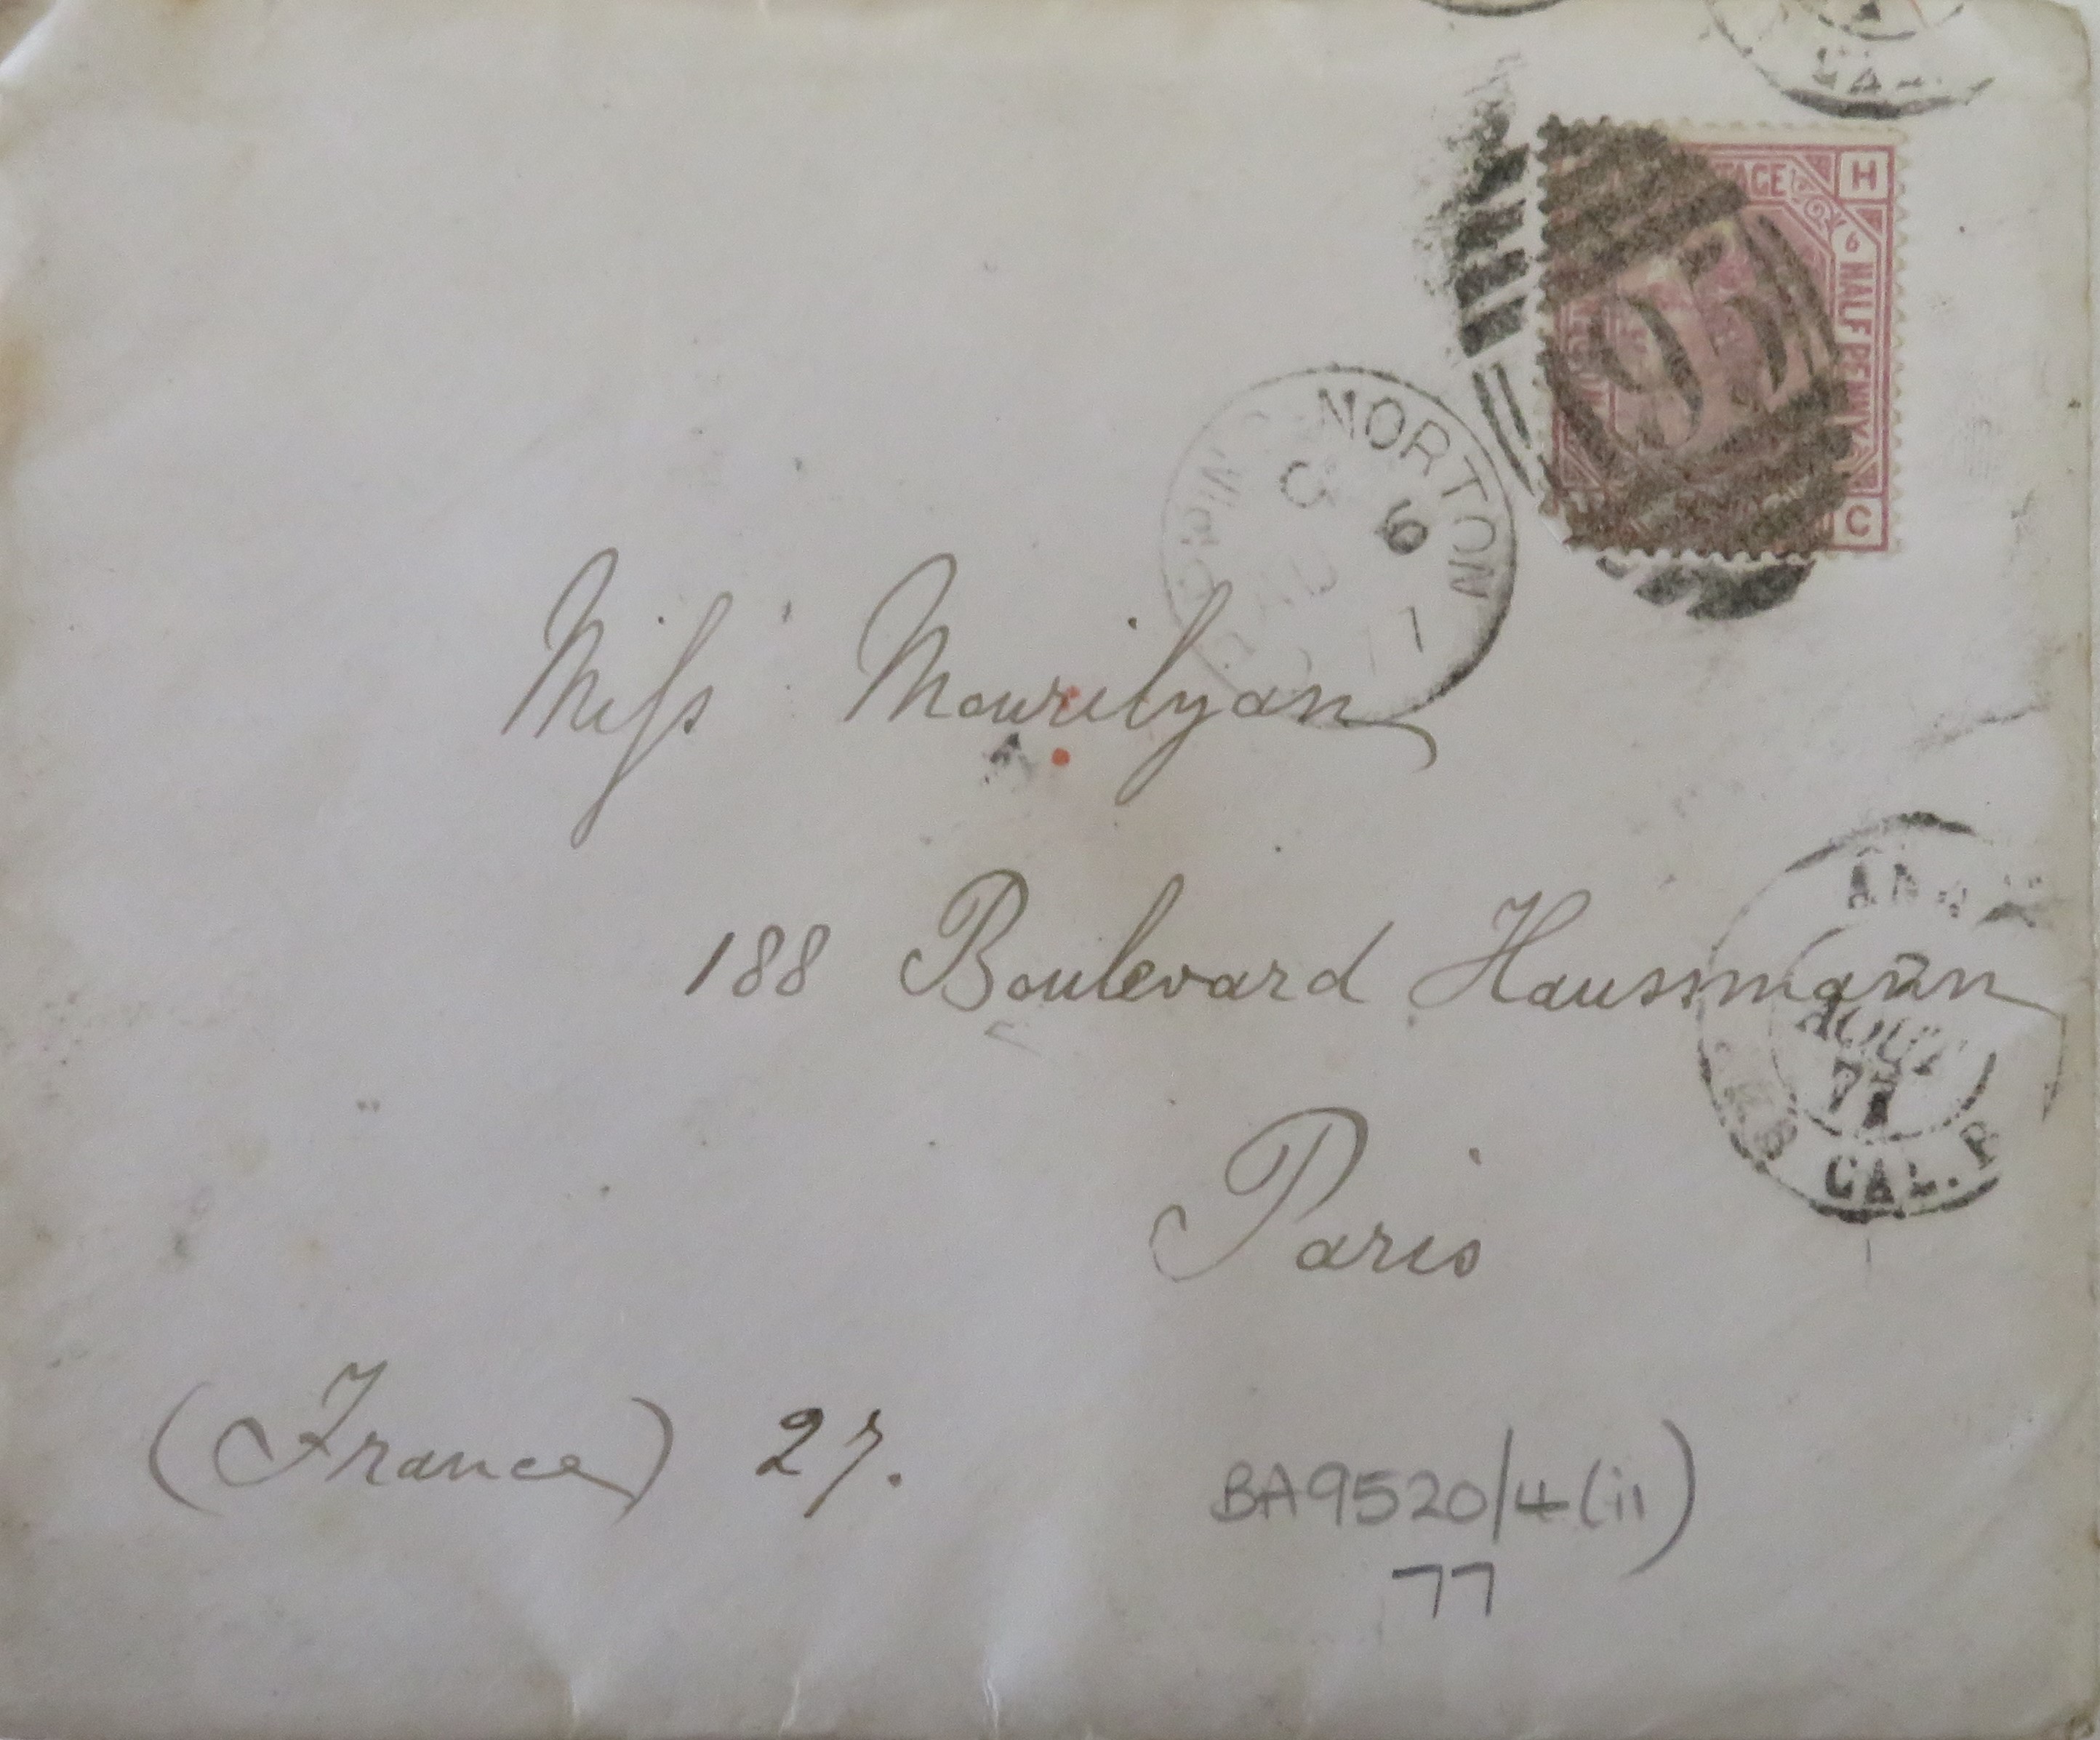 TAGE H
6 HALF PENNY
C
95
NORTON
C
6
77
Miss Mourilyan
188 Boulevard Haussmann
AOUT
77
CAL.
Paris
(France) 27.
BA9520/4(ii)
77